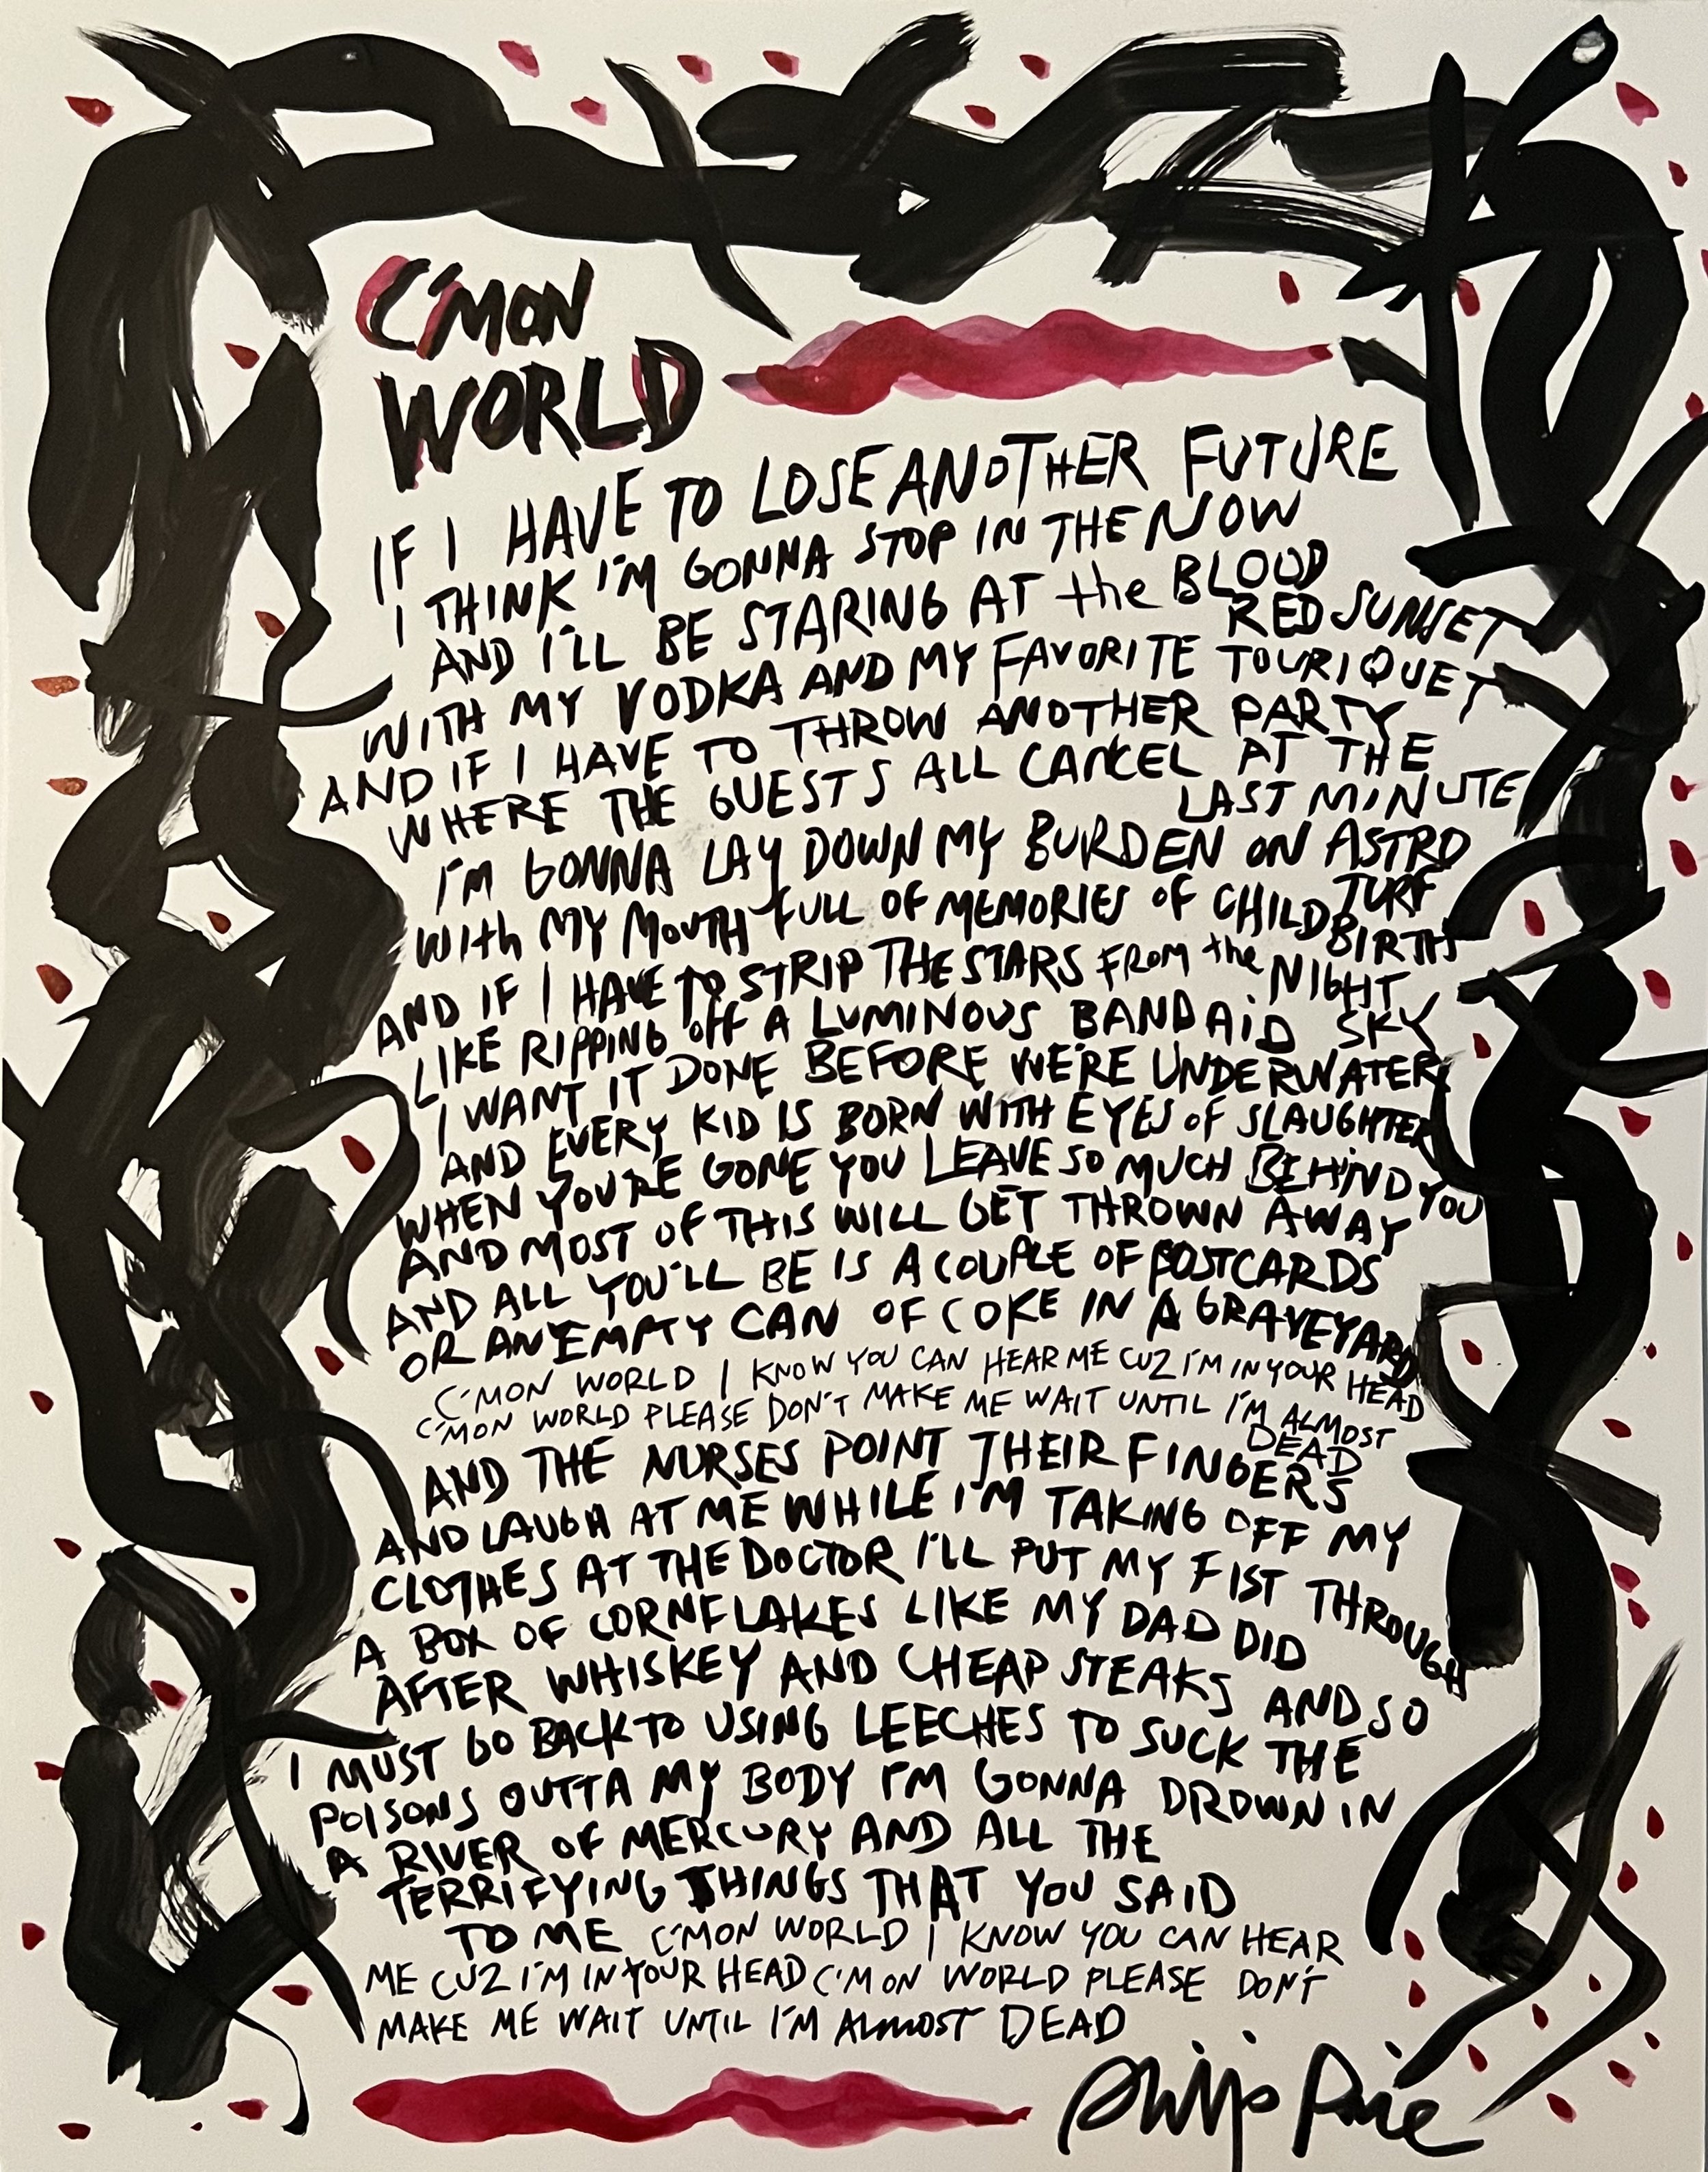 C'MON
WORLD
IF I HAVE TO LOSE ANOTHER FUTURE
I THINK I'M GONNA STOP IN THE NOW
AND I'LL BE STARING AT the BLOOD
RED SUNSET
WITH MY VODKA AND MY FAVORITE TOURIQUET
AND IF I HAVE TO THROW ANOTHER PARTY
WHERE THE GUESTS ALL CANCEL AT THE
LAST MINUTE
I'M GONNA LAY DOWN MY BURDEN ON ASTRO
TURF
WITh MY MOUTH FULL OF MEMORIES OF CHILD
BIRTH
AND IF I HAVE TO STRIP THE STARS FROM the NIGHT
SKY
LIKE RIPPING off A LUMINOUS BAND AiD
I WANT IT DONE BEFORE WE'RE UNDERWATER
AND EVERY KID IS BORN WITH EYES OF SLAUGHTER
WHEN YOU'RE GONE YOU LEAVE SO MUCH BEHIND YOU
AND MOST OF THIS WILL GET THROWN AWAY
AND ALL YOU'LL BE IS A COUPLE OF POSTCARDS
OR AN EMPTY CAN OF COKE IN A GRAVEYARD
C'MON WORLD I KNOW YOU CAN HEAR ME CUZ I'M IN YOUR HEAD
C'MON WORLD PLEASE DON'T MAKE ME WAIT UNTIL I'M ALMOST
DEAD
AND THE NURSES POINT THEIR FINGERS
AND LAUGH AT ME WHILE I'M TAKING OFF MY
CLOTHES AT THE DOCTOR I'LL PUT MY FIST THROUGH
A BOX OF CORNFLAKES LIKE MY DAD DID
AFTER WHISKEY AND CHEAP STEAKS AND SO
I MUST GO BACK TO USING LEECHES TO SUCK THE
POISONS OUTTA MY BODY I'M GONNA DROWN IN
A RIVER OF MERCURY AND ALL THE
TERRIFYING THINGS THAT YOU SAID
TO ME C'MON WORLD I KNOW YOU CAN HEAR
ME CUZ I'M IN YOUR HEAD C'MON WORLD PLEASE DON'T
MAKE ME WAIT UNTIL I'M ALMOST DEAD